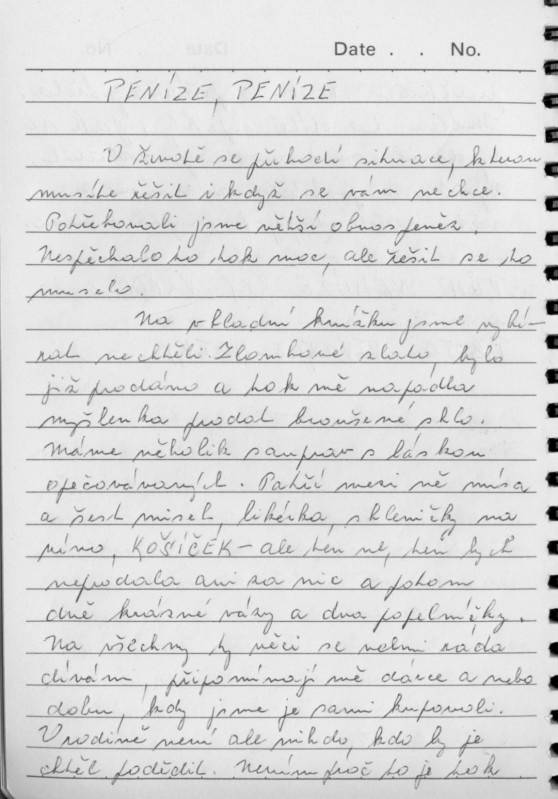 Date . . No.
PENÍZE, PENÍZE
V životě se přihodí situace, kterou
musíte řešit i když se vám nechce.
Potřebovali jsme větší obnos peněz.
Nespěchalo to tak moc, ale řešit se to
muselo.
Na vkladní knížku jsme vybí-
rat nechtěli. Zlomkové zlato, bylo
již prodáno a tak mě napadla
myšlenka prodat broušené sklo.
Máme několik souprav s láskou
opečovávaných. Patří mezi ně mísa
a šest misek, likérka, skleničky na
víno, KOŠÍČEK - ale ten ne, ten bych
neprodala ani za nic a potom
dvě krásné vázy a dva popelníčky.
Na všechny ty věci se velmi ráda
dívám, připomínají mě dárce a nebo
dobu, kdy jsme je sami kupovali.
V rodině není ale nikdo, kdo by je
chtěl podědit. Nevím proč to je tak